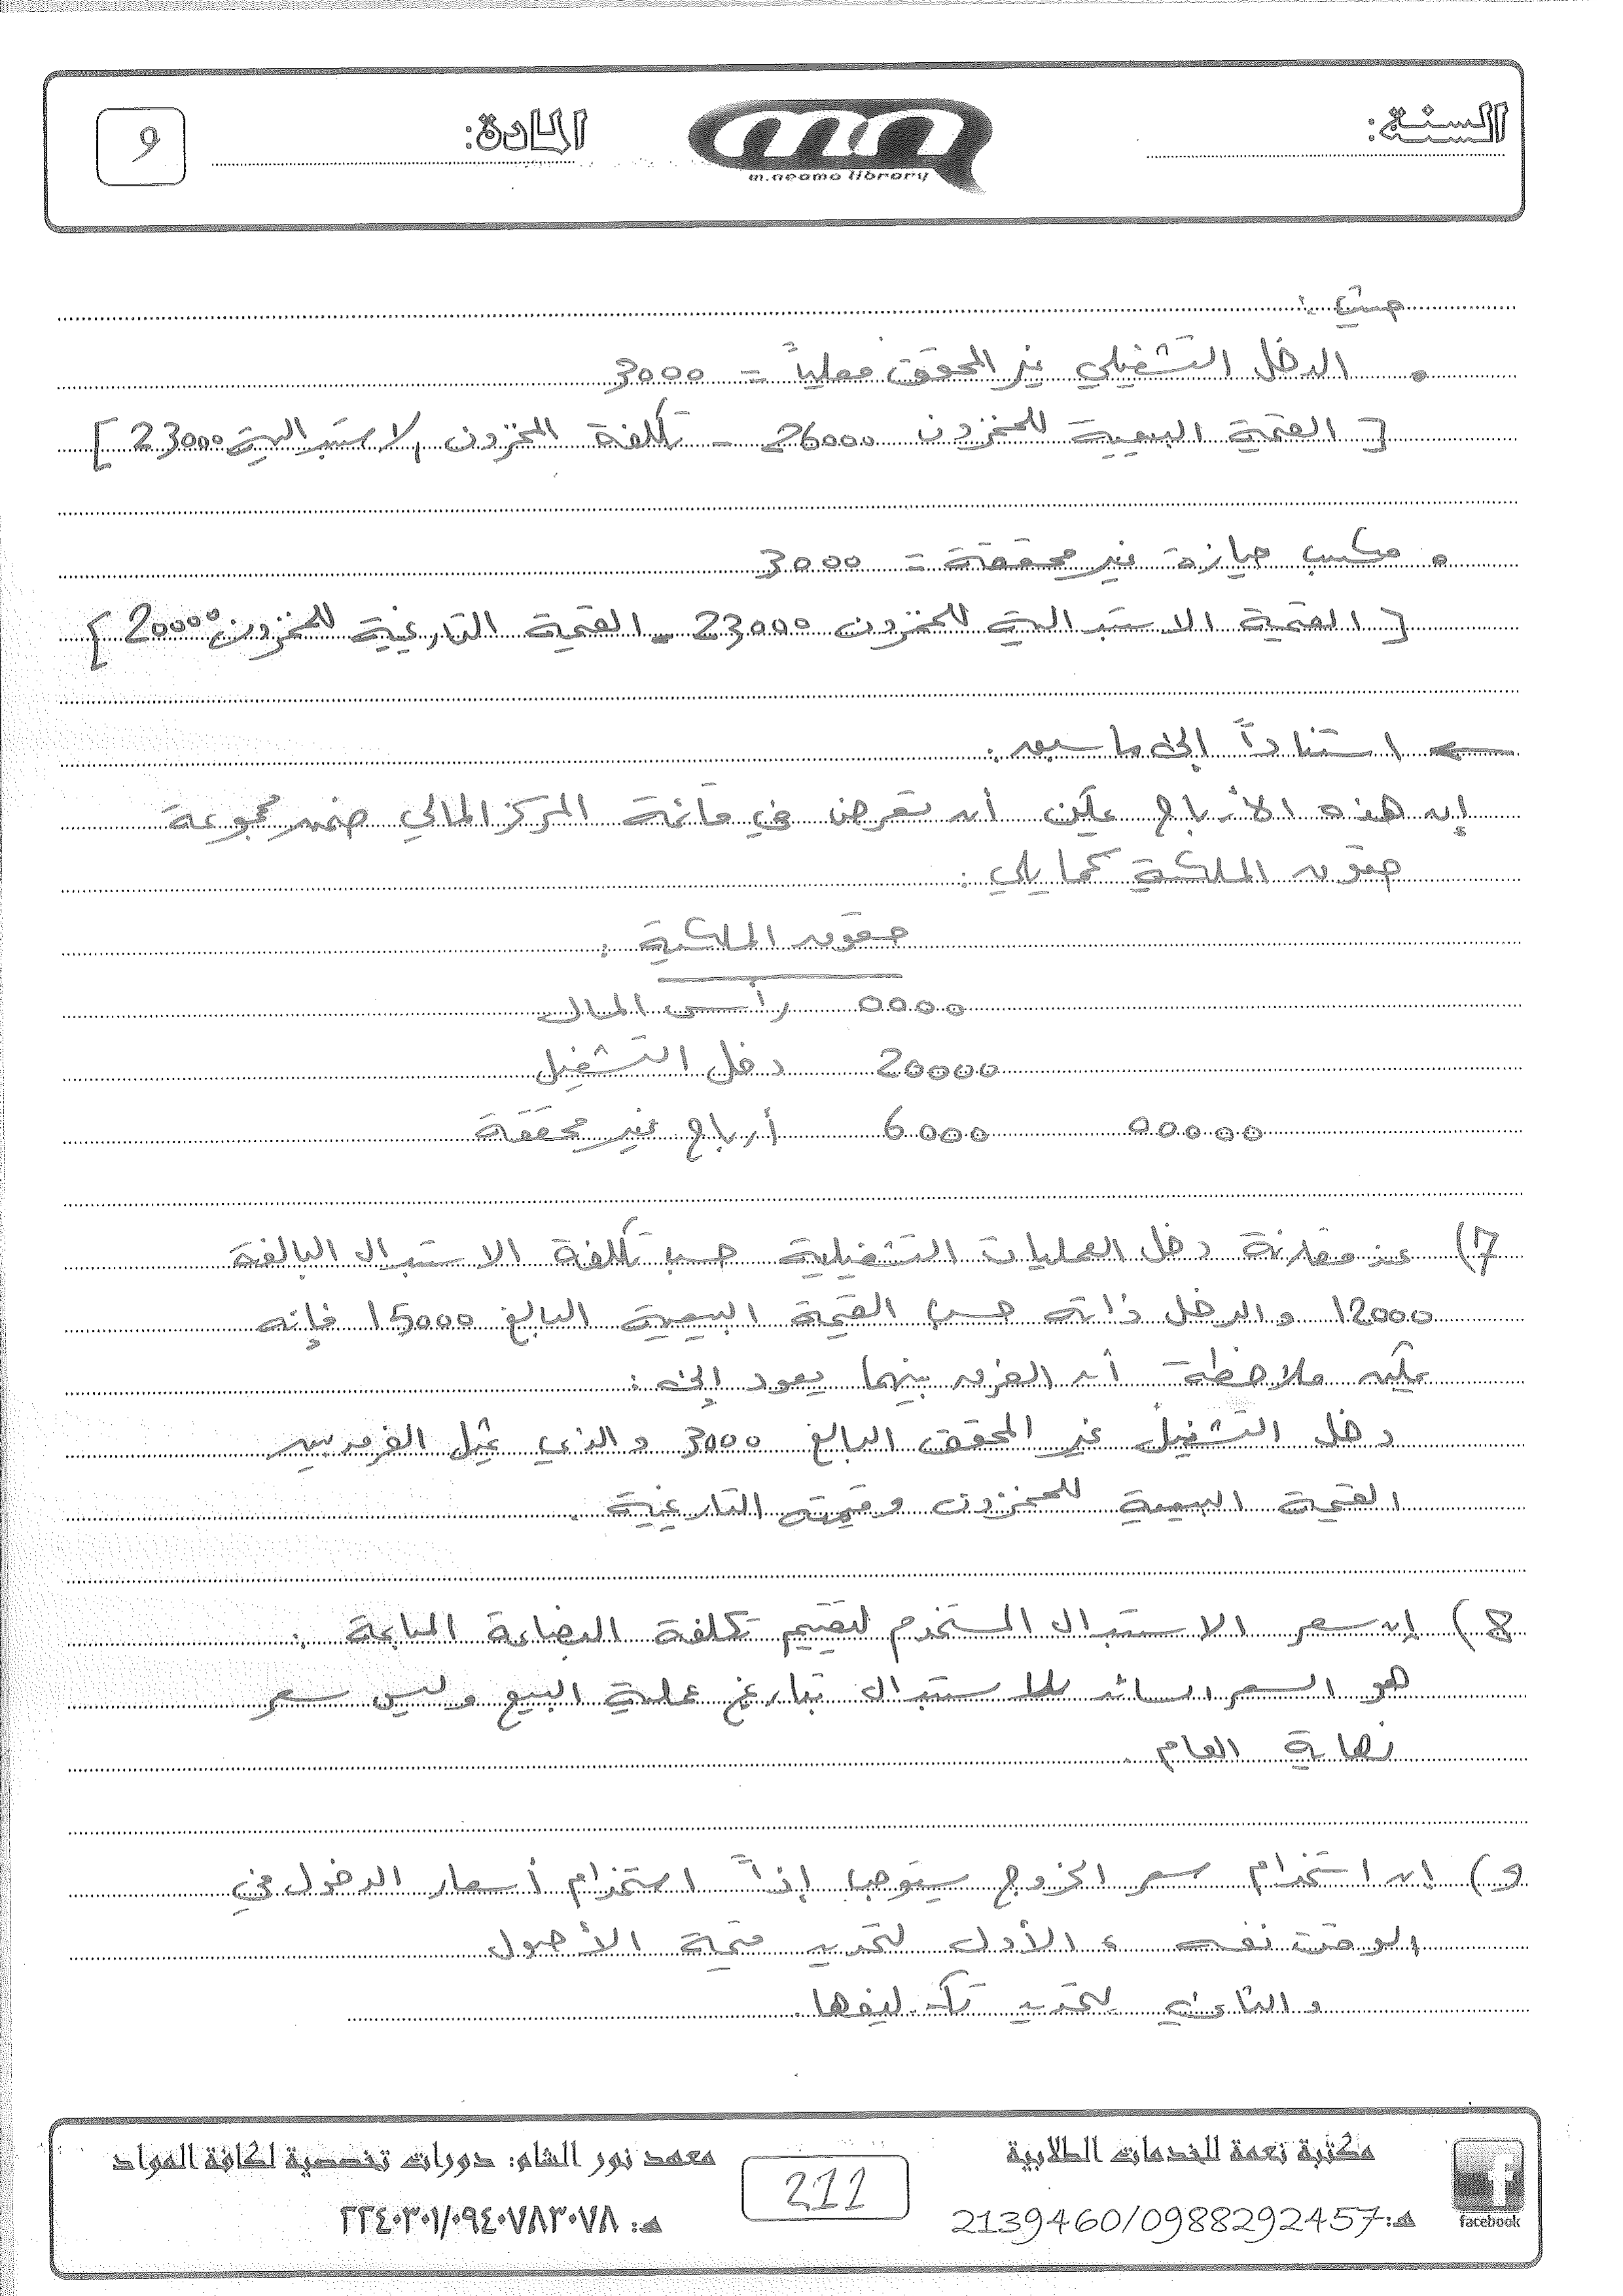 السنة:
m.neama library
المادة:
9
حيث :
• الدخل التشغيلي غير المحقق فعلياً = 3000
[ القيمة البيعية للمخزون 26000 - تكلفة المخزون الاستبدالية 23000 ]
• مكسب حيازة غير محققة = 3000
[ القيمة الاستبدالية للمخزون 23000 - القيمة التاريخية للمخزون 20000 ]
← استناداً إلى ما سبق :
إن هذه الأرباح يمكن أن تعرض في قائمة المركز المالي ضمن مجموعة
حقوق الملكية كما يلي :
حقوق الملكية :
0000 رأس المال
20000 دخل التشغيل
00000 6000 أرباح غير محققة
7) عند مقارنة دخل العمليات التشغيلية حسب تكلفة الاستبدال البالغة
12000 والدخل ذاته حسب القيمة البيعية البالغ 15000 فإنه
يمكن ملاحظة أن الفرق بينهما يعود إلى :
دخل التشغيل غير المحقق البالغ 3000 والذي يمثل الفرق بين
القيمة البيعية للمخزون وقيمته التاريخية .
8) إن سعر الاستبدال المستخدم لتقييم تكلفة البضاعة المباعة :
هو السعر السائد للاستبدال بتاريخ عملية البيع وليس سعر
نهاية العام .
9) إن استخدام سعر الخروج يستوجب إذاً استخدام أسعار الدخول في
الوقت نفسه ، الأول لتحديد قيمة الأصول
والثاني لتحديد تكاليفها .
مكتبة نعمة للخدمات الطلابية
هـ: 2139460/0988292457
facebook
211
معهد نور الشام: دورات تخصصية لكافة المواد
هـ: ٢٢٤٠٣٠١/٠٩٤٠٧٨٣٠٧٨